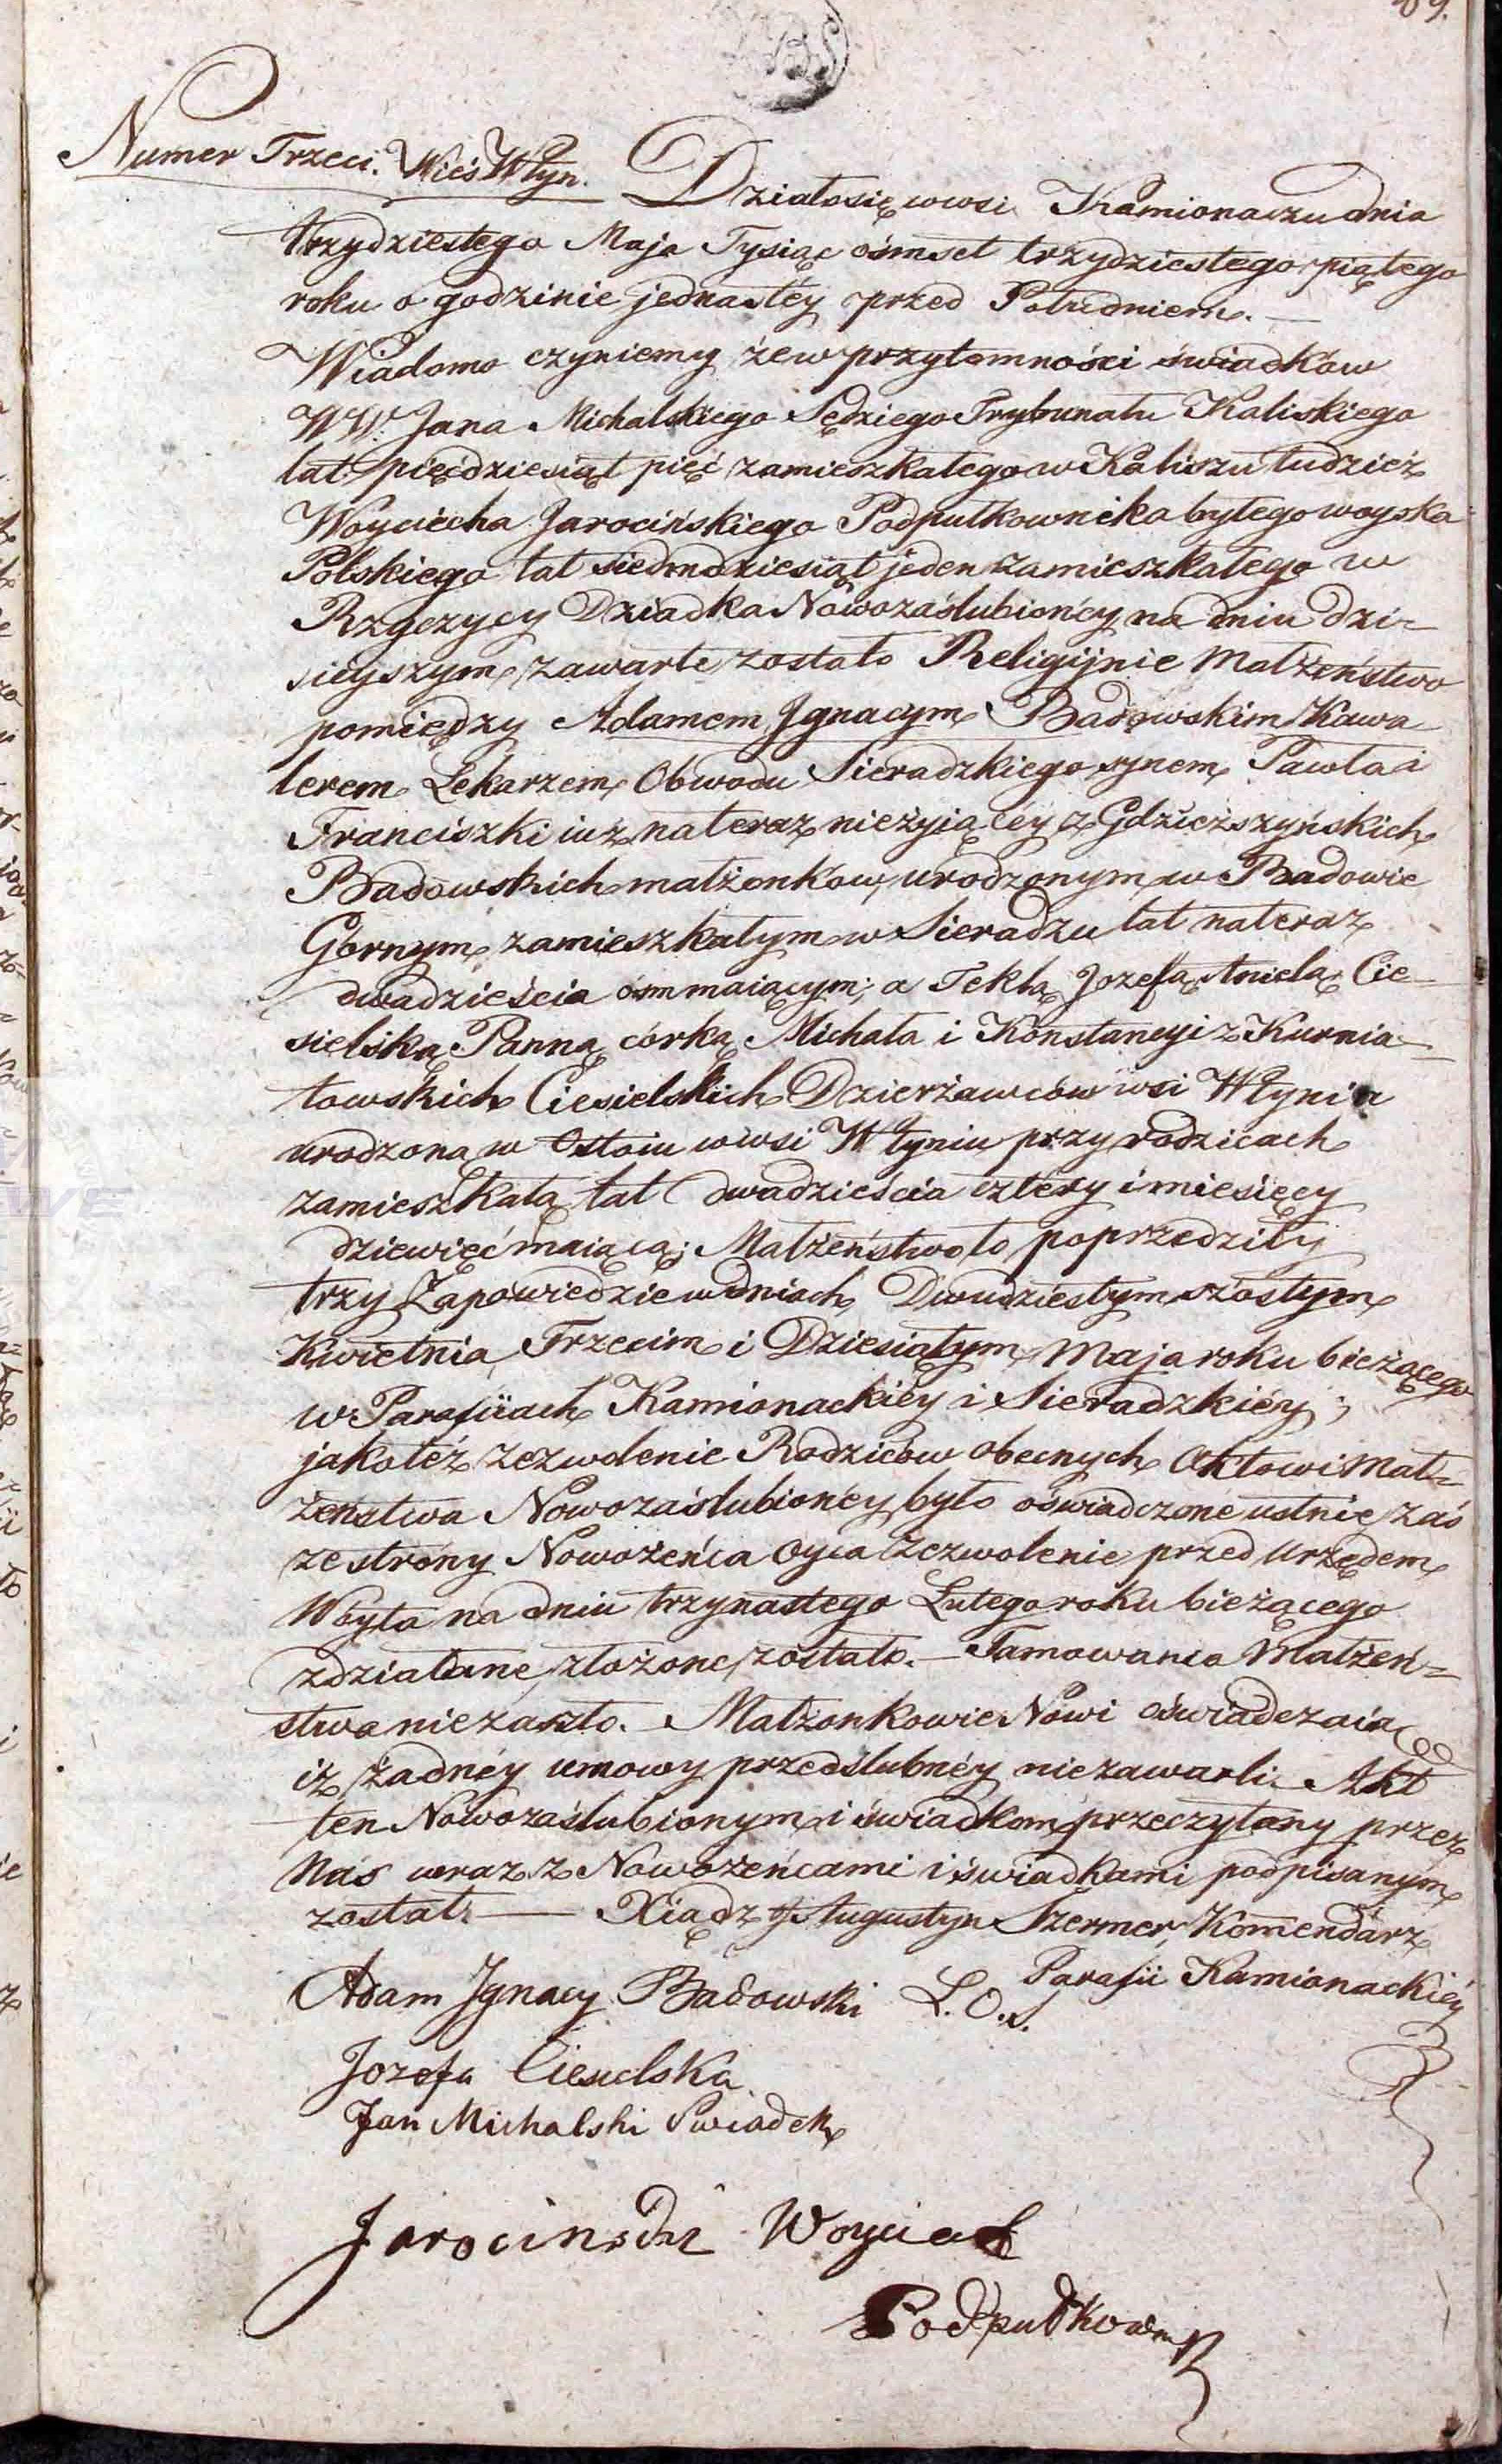 Numer Trzeci. Wieś Włyn. Działo się w wsi Kamionaczu dnia
trzydziestego Maja Tysiąc ośmset trzydziestego piątego
roku o godzinie jednastéy przed Południem. —
Wiadomo czyniemy że w przytomności świadków
WW. Jana Michalskiego Sędziego Trybunału Kaliskiego
lat pięćdziesiąt pięć zamieszkałego w Kaliszu tudzież
Woyciecha Jarocińskiego Podpułkownika byłego woyska
Polskiego lat siedmdziesiąt jeden zamieszkałego w
Rzgczycy Dziadka Nowozaślubionéy na dniu dzi-
sieyszym zawarte zostało Religijnie Małżeństwo
pomiędzy Adamem Ignacym Badowskim Kawa
lerem Lekarzem Obwodu Sieradzkiego synem Pawła i
Franciszki iuż na teraz nieżyiącéy z Gdzieższyńskich
Badowskich małżonków, urodzonym w Badowie
Górnym zamieszkałym w Sieradzu lat na teraz
dwadzieścia óśm maiącym; a Teklą Jozefą Anielą Cie-
sielską Panną córką Michała i Konstancyi z Kurnia-
towskich Ciesielskich Dzierżawców wsi Włynia
urodzoną w Ostoiu w wsi Włyniu przy rodzicach
zamieszkałą lat dwadzieścia cztery i miesięcy
dziewięć maiącą; Małżeństwo to poprzedziły
trzy Zapowiedzie w dniach Dwudziestym szóstym
Kwietnia, Trzecim i Dziesiątym Maja roku bieżącego
w Parafiiach Kamionackiéy i Sieradzkiéy;
jako też zezwolenie Rodziców obecnych Aktowi Mał-
żeństwa Nowozaślubionéy było oświadczone ustnie zaś
ze strony Nowożeńca Oyca zezwolenie przed Urzędem
Woyta na dniu trzynastego Lutego roku bieżącego
zdziałane, złożone zostało. — Tamowania Małżeń-
stwa nie zaszło. — Małżonkowie Nowi oświadczaią
iż żadnéy umowy przedślubnéy nie zawarli. Akt
ten Nowozaślubionym i świadkom przeczytany przez
Nas wraz z Nowożeńcami i świadkami podpisanym
został. — Xiądz Augustyn Szermer, Komendarz
Parafii Kamionackiéy
Adam Ignacy Badowski L. O. S.
Jozefa Ciesielska
Jan Michalski Swiadek
Jarocinski Woyciech
Podpułkownik